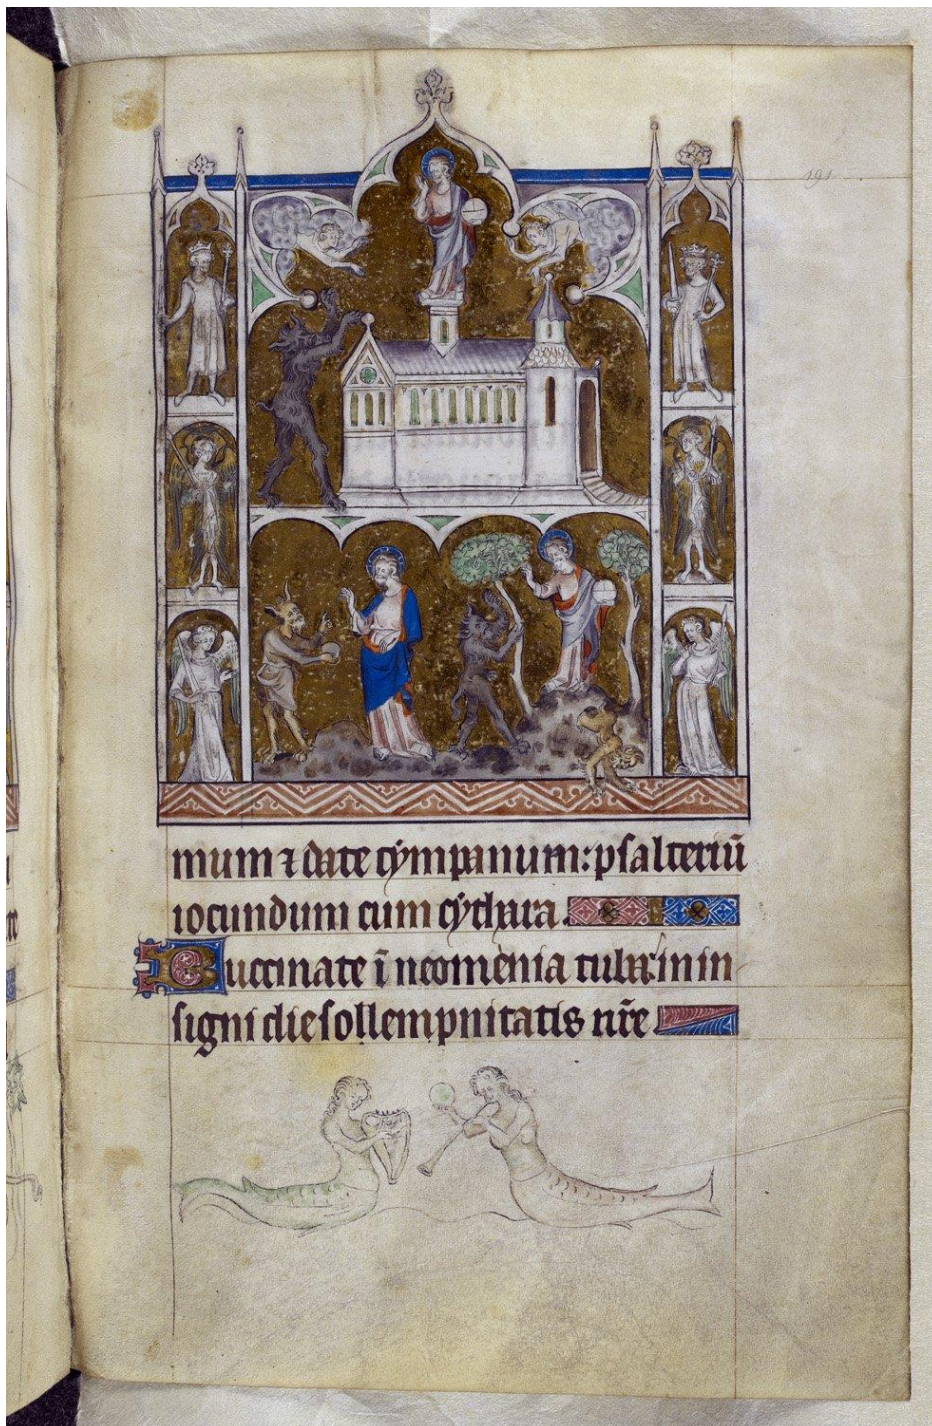 191
mum ⁊ date tẏmpanum: psalteriū
iocundum cum cẏthara.
Buccinate ī neomenia tuba: in in
signi die sollempnitatis nr̄e